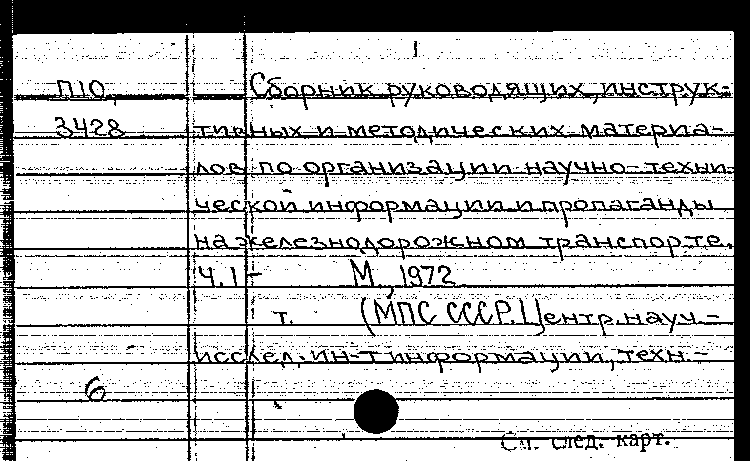 1
П10, Сборник руководящих, инструк-
3428 тивных и методических материа-
лов по организации научно-техни
ческой информации и пропаганды
на железнодорожном транспорте.
Ч.1- М., 1972
т. (МПС СССР. Центр. науч.-
исслед. ин-т информации, техн.-
6
См. след. карт.